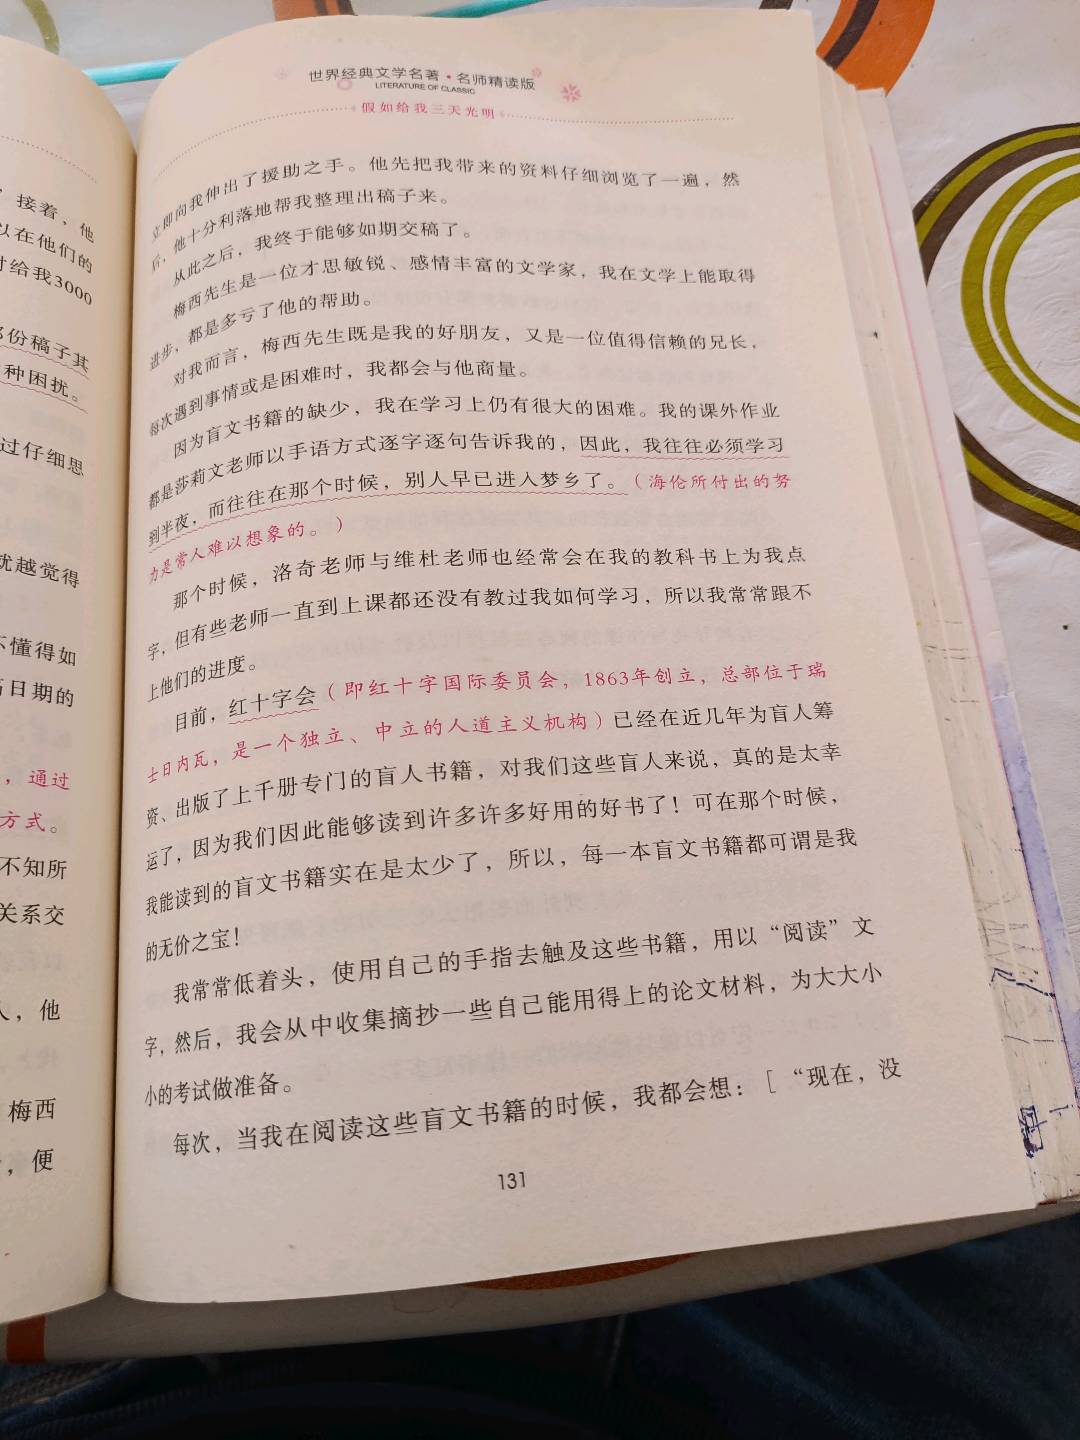 接着，他
以在他们的
给我3000
份稿子其
种困扰。
过仔细思
就越觉得
不懂得如
日期的
，通过
方式。
不知所
关系交
人，他
梅西
，便
世界经典文学名著·名师精读版
LITERATURE OF CLASSIC
假如给我三天光明
立即向我伸出了援助之手。他先把我带来的资料仔细浏览了一遍，然
后，他十分利落地帮我整理出稿子来。
从此之后，我终于能够如期交稿了。
梅西先生是一位才思敏锐、感情丰富的文学家，我在文学上能取得
进步、都是多亏了他的帮助。
对我而言，梅西先生既是我的好朋友，又是一位值得信赖的兄长，
每次遇到事情或是困难时，我都会与他商量。
因为盲文书籍的缺少，我在学习上仍有很大的困难。我的课外作业
都是莎莉文老师以手语方式逐字逐句告诉我的，因此，我往往必须学习
到半夜，而往往在那个时候，别人早已进入梦乡了。（海伦所付出的努
力是常人难以想象的。）
那个时候，洛奇老师与维杜老师也经常会在我的教科书上为我点
字，但有些老师一直到上课都还没有教过我如何学习，所以我常常跟不
上他们的进度。
目前，红十字会（即红十字国际委员会，1863年创立，总部位于瑞
士日内瓦，是一个独立、中立的人道主义机构）已经在近几年为盲人筹
资、出版了上千册专门的盲人书籍，对我们这些盲人来说，真的是太幸
运了，因为我们因此能够读到许多许多好用的好书了！可在那个时候，
我能读到的盲文书籍实在是太少了，所以，每一本盲文书籍都可谓是我
的无价之宝！
我常常低着头，使用自己的手指去触及这些书籍，用以“阅读”文
字，然后，我会从中收集摘抄一些自己能用得上的论文材料，为大大小
小的考试做准备。
每次，当我在阅读这些盲文书籍的时候，我都会想：[“现在，没
131